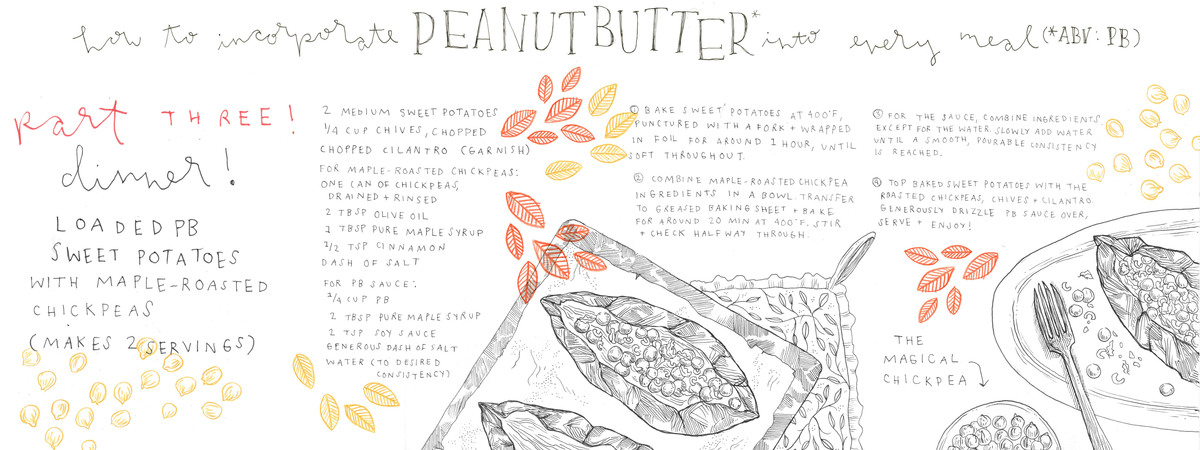 how to incorporate PEANUT BUTTER* into every meal (*ABV: PB)
part THREE!
dinner!
LOADED PB
SWEET POTATOES
WITH MAPLE-ROASTED
CHICKPEAS
(MAKES 2 SERVINGS)
2 MEDIUM SWEET POTATOES
1/4 CUP CHIVES, CHOPPED
CHOPPED CILANTRO (GARNISH)
FOR MAPLE-ROASTED CHICKPEAS:
ONE CAN OF CHICKPEAS,
DRAINED + RINSED
2 TBSP OLIVE OIL
1 TBSP PURE MAPLE SYRUP
1/2 TSP CINNAMON
DASH OF SALT
FOR PB SAUCE:
1/4 CUP PB
2 TBSP PURE MAPLE SYRUP
2 TSP SOY SAUCE
GENEROUS DASH OF SALT
WATER (TO DESIRED
CONSISTENCY)
① BAKE SWEET POTATOES AT 400°F,
PUNCTURED WITH A FORK + WRAPPED
IN FOIL FOR AROUND 1 HOUR, UNTIL
SOFT THROUGHOUT.
② COMBINE MAPLE-ROASTED CHICKPEA
INGREDIENTS IN A BOWL. TRANSFER
TO GREASED BAKING SHEET + BAKE
FOR AROUND 20 MIN AT 400°F. STIR
+ CHECK HALFWAY THROUGH.
③ FOR THE SAUCE, COMBINE INGREDIENTS
EXCEPT FOR THE WATER. SLOWLY ADD WATER
UNTIL A SMOOTH, POURABLE CONSISTENCY
IS REACHED.
④ TOP BAKED SWEET POTATOES WITH THE
ROASTED CHICKPEAS, CHIVES + CILANTRO.
GENEROUSLY DRIZZLE PB SAUCE OVER,
SERVE + ENJOY!
THE
MAGICAL
CHICKPEA